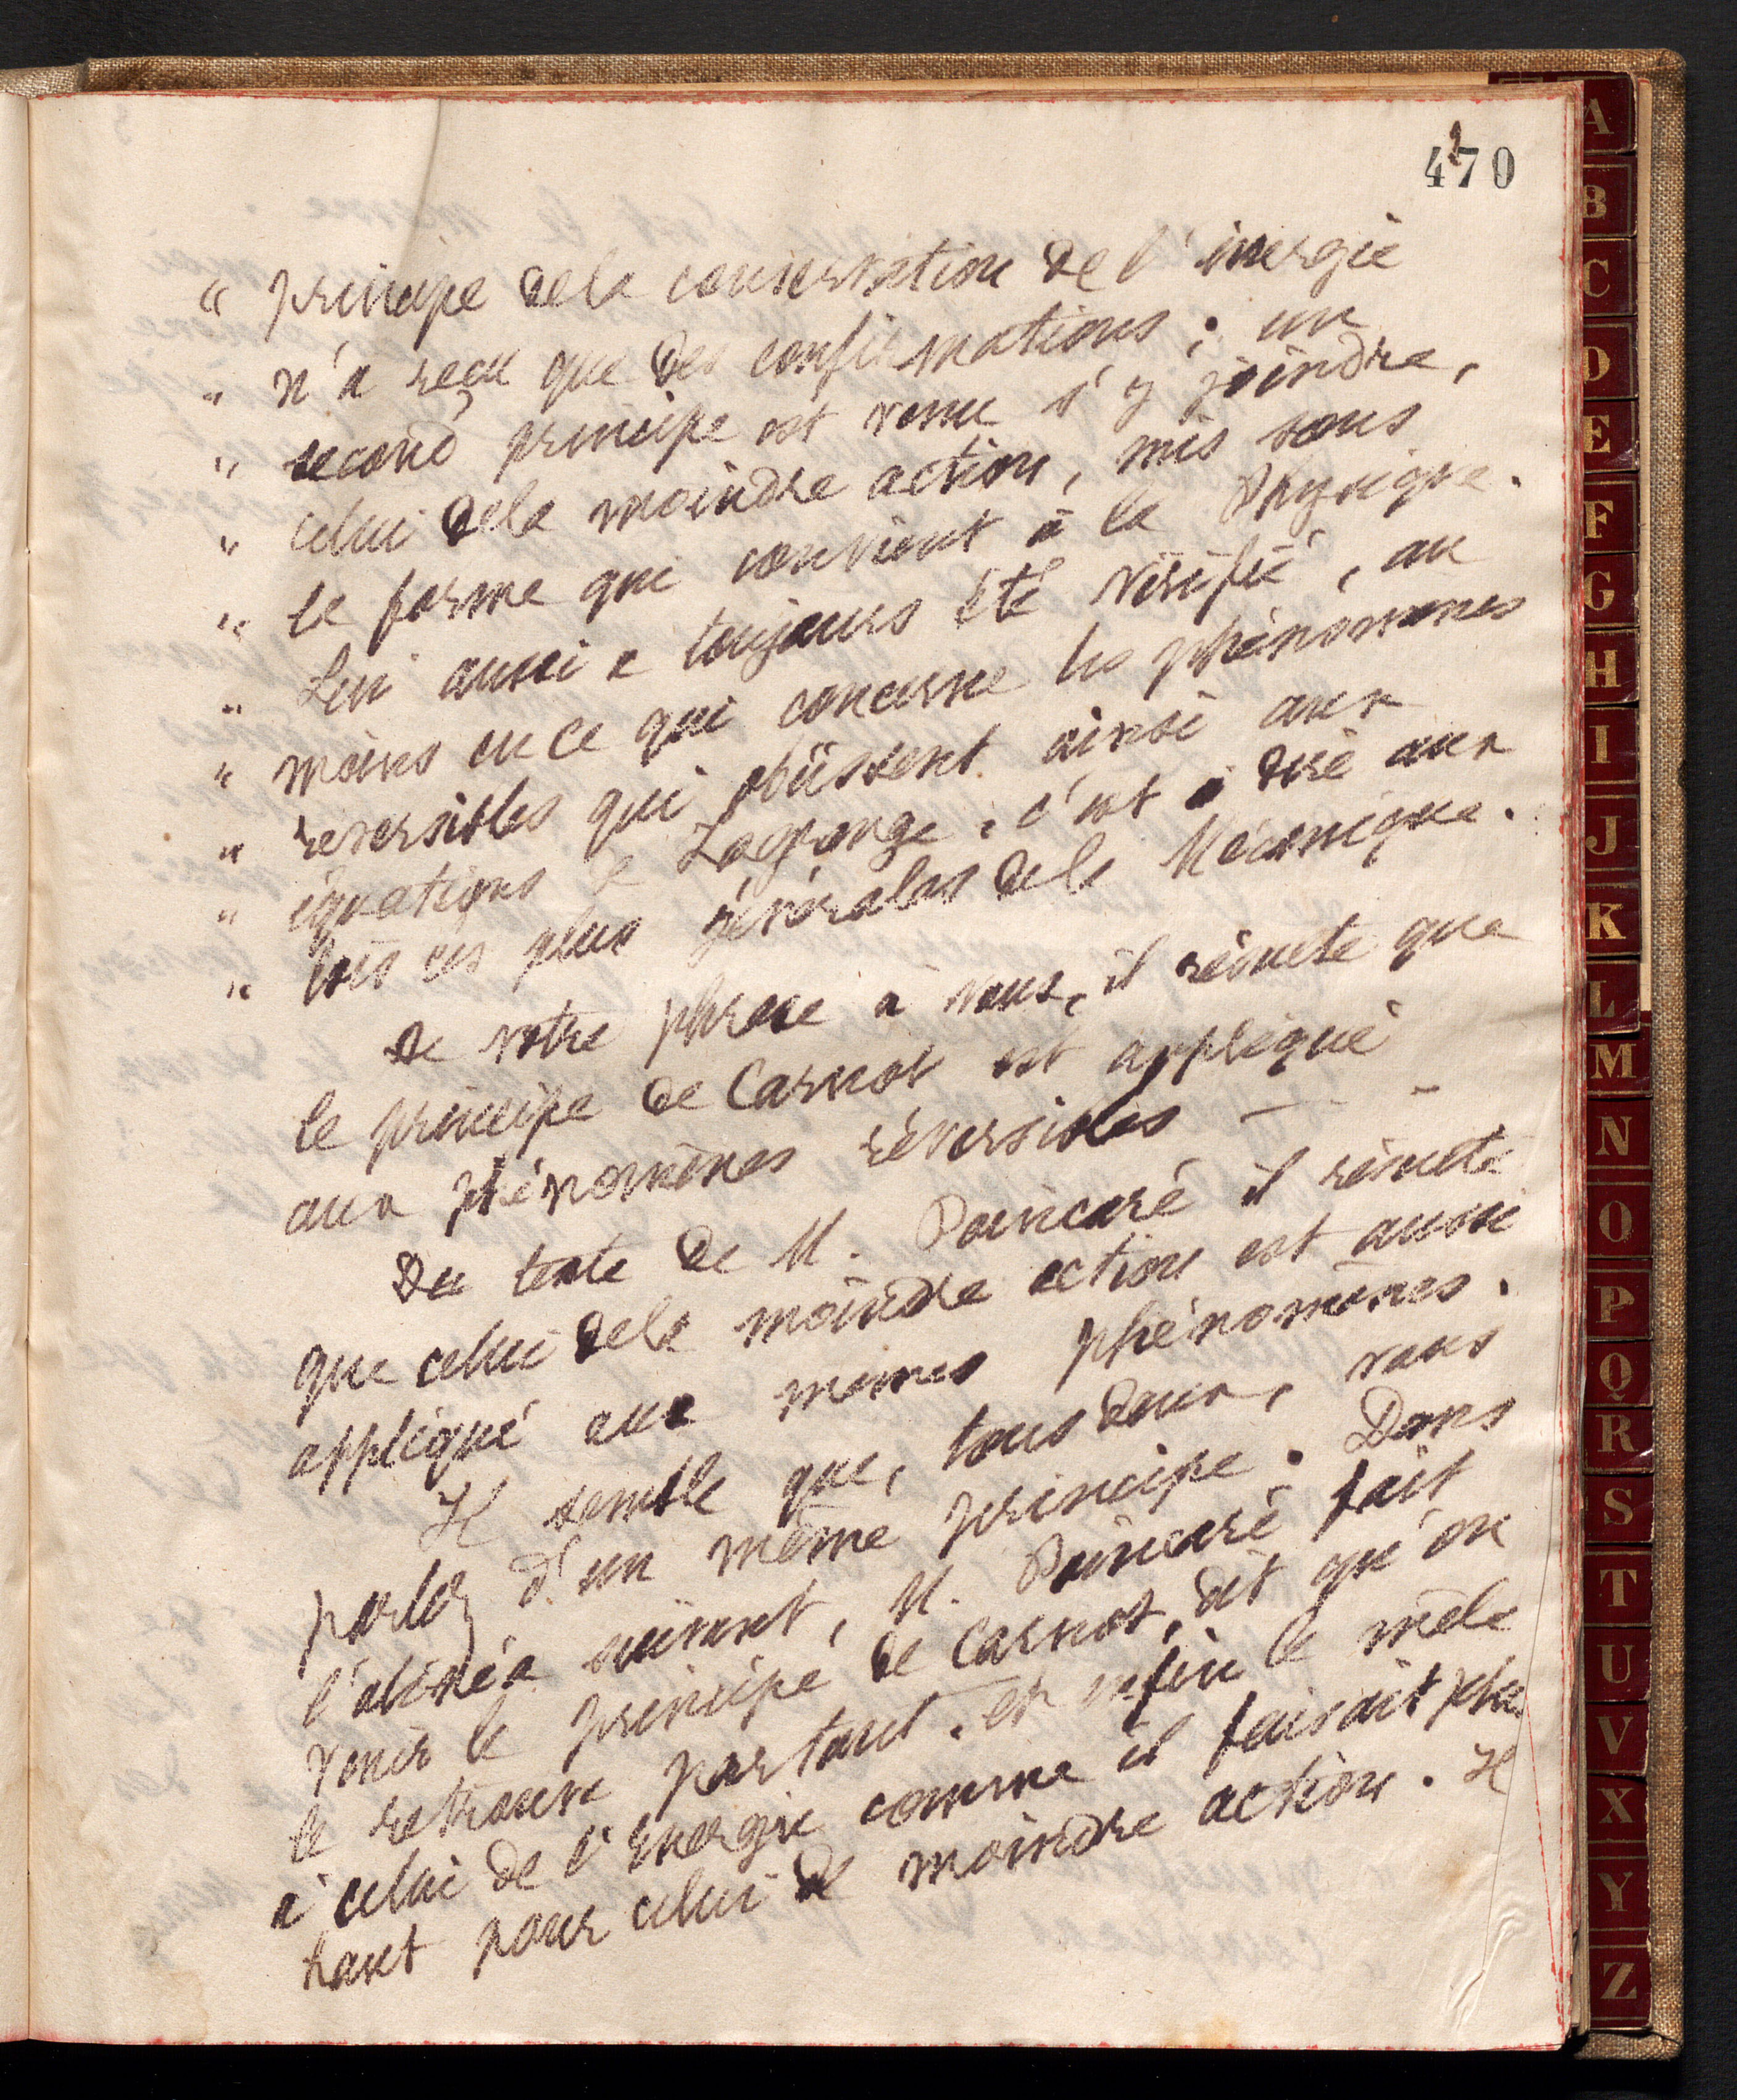 470
2
“ principe de la conservation de l'énergie
" n'a reçu que des confirmations ; un
" second principe est venu s'y joindre,
" celui de la moindre action, mis sous
" la forme qui convient à la Physique.
" Lui aussi a toujours été vérifié, au
" moins en ce qui concerne les phénomènes
" reversibles qui obéissent ainsi aux
" équations de Lagrange, c'est à dire aux
" lois les plus générales de la Mécanique.
De votre phrase à vous, il résulte que
le principe de Carnot est appliqué
aux phénomènes réversibles — — —
Du texte de M. Poincaré il résulte
que celui de la moindre action est aussi
appliqué aux memes phénomènes.
Il semble que, tous deux, vous
parlez d'un même principe. Dans
l'alinéa suivant, M. Poincaré fait
venir le principe de Carnot, dit qu'on
le retrouve partout. et enfin le mêle
à celui de l'Energie comme il faisait plus
haut pour celui de moindre action. Il
A
B
C
D
E
F
G
H
I
J
K
L
M
N
O
P
Q
R
S
T
U
V
X
Y
Z